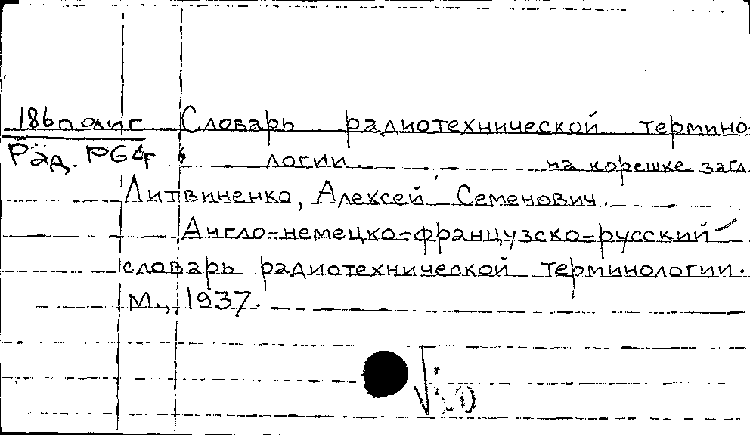 Словарь радиотехнической термино-
Рад. логии на корешке загл.
Литвиненко, Алексей Семенович.
Англо-немецко-французско-русский
словарь радиотехнической терминологии.
М., 1937.